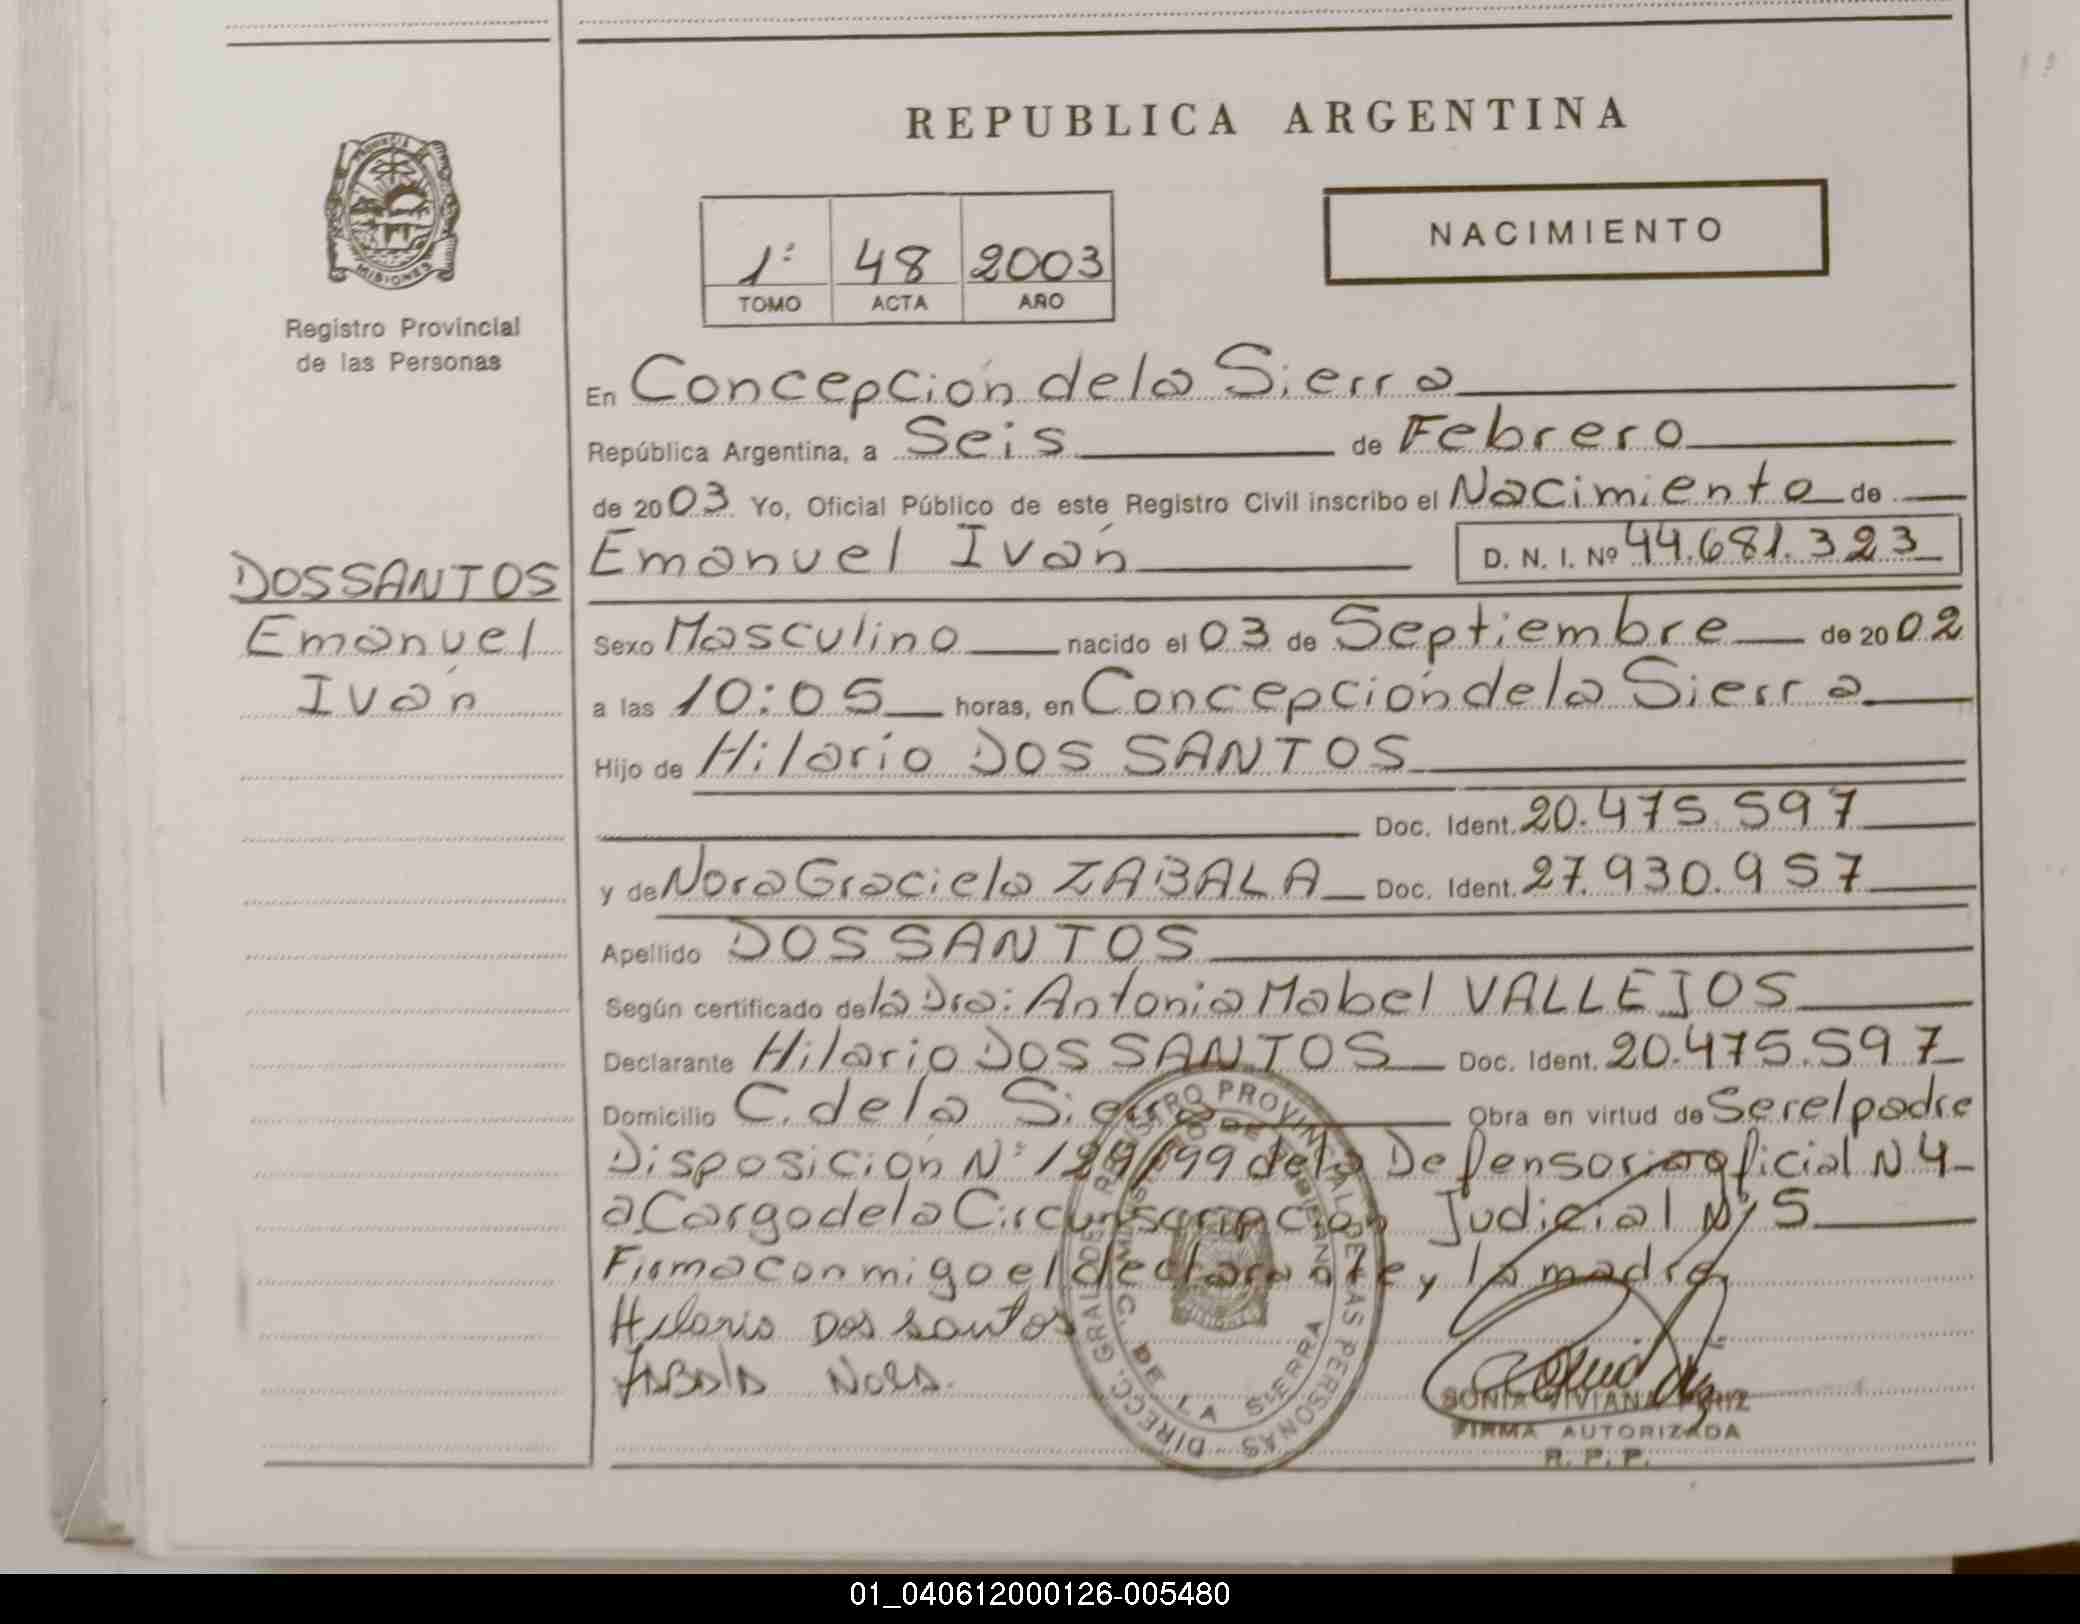 REPUBLICA ARGENTINA
PROVINCIA DE
MISIONES
Registro Provincial
de las Personas
NACIMIENTO
1º 48 2003
TOMO ACTA AÑO
En Concepción de la Sierra
República Argentina, a Seis de Febrero
de 2003 Yo, Oficial Público de este Registro Civil inscribo el Nacimiento de
Emanuel Iván D. N. I. Nº 44.681.323
DOS SANTOS
Emanuel
Iván
Sexo Masculino nacido el 03 de Septiembre de 2002
a las 10:05 horas, en Concepción de la Sierra
Hijo de Hilario DOS SANTOS
Doc. Ident. 20.475.597
y de Nora Graciela ZABALA Doc. Ident. 27.930.957
Apellido DOS SANTOS
Según certificado de la Dra: Antonia Mabel VALLEJOS
Declarante Hilario DOS SANTOS Doc. Ident. 20.475.597
Domicilio C. de la Sierra Obra en virtud de Ser el padre
Disposición Nº 199/99 de la Defensoria oficial N 4
a Cargo de la Circunscripción Judicial Nº 5
Firma conmigo el declarante y la madre
Hilario Dos santos
ZABALA NORA.
DIRECC. GRAL DEL REGISTRO PROVINCIAL DE LAS PERSONAS
DE LA SIERRA
SONIA VIVIANA
FIRMA AUTORIZADA
R. P. P.
01_040612000126-005480